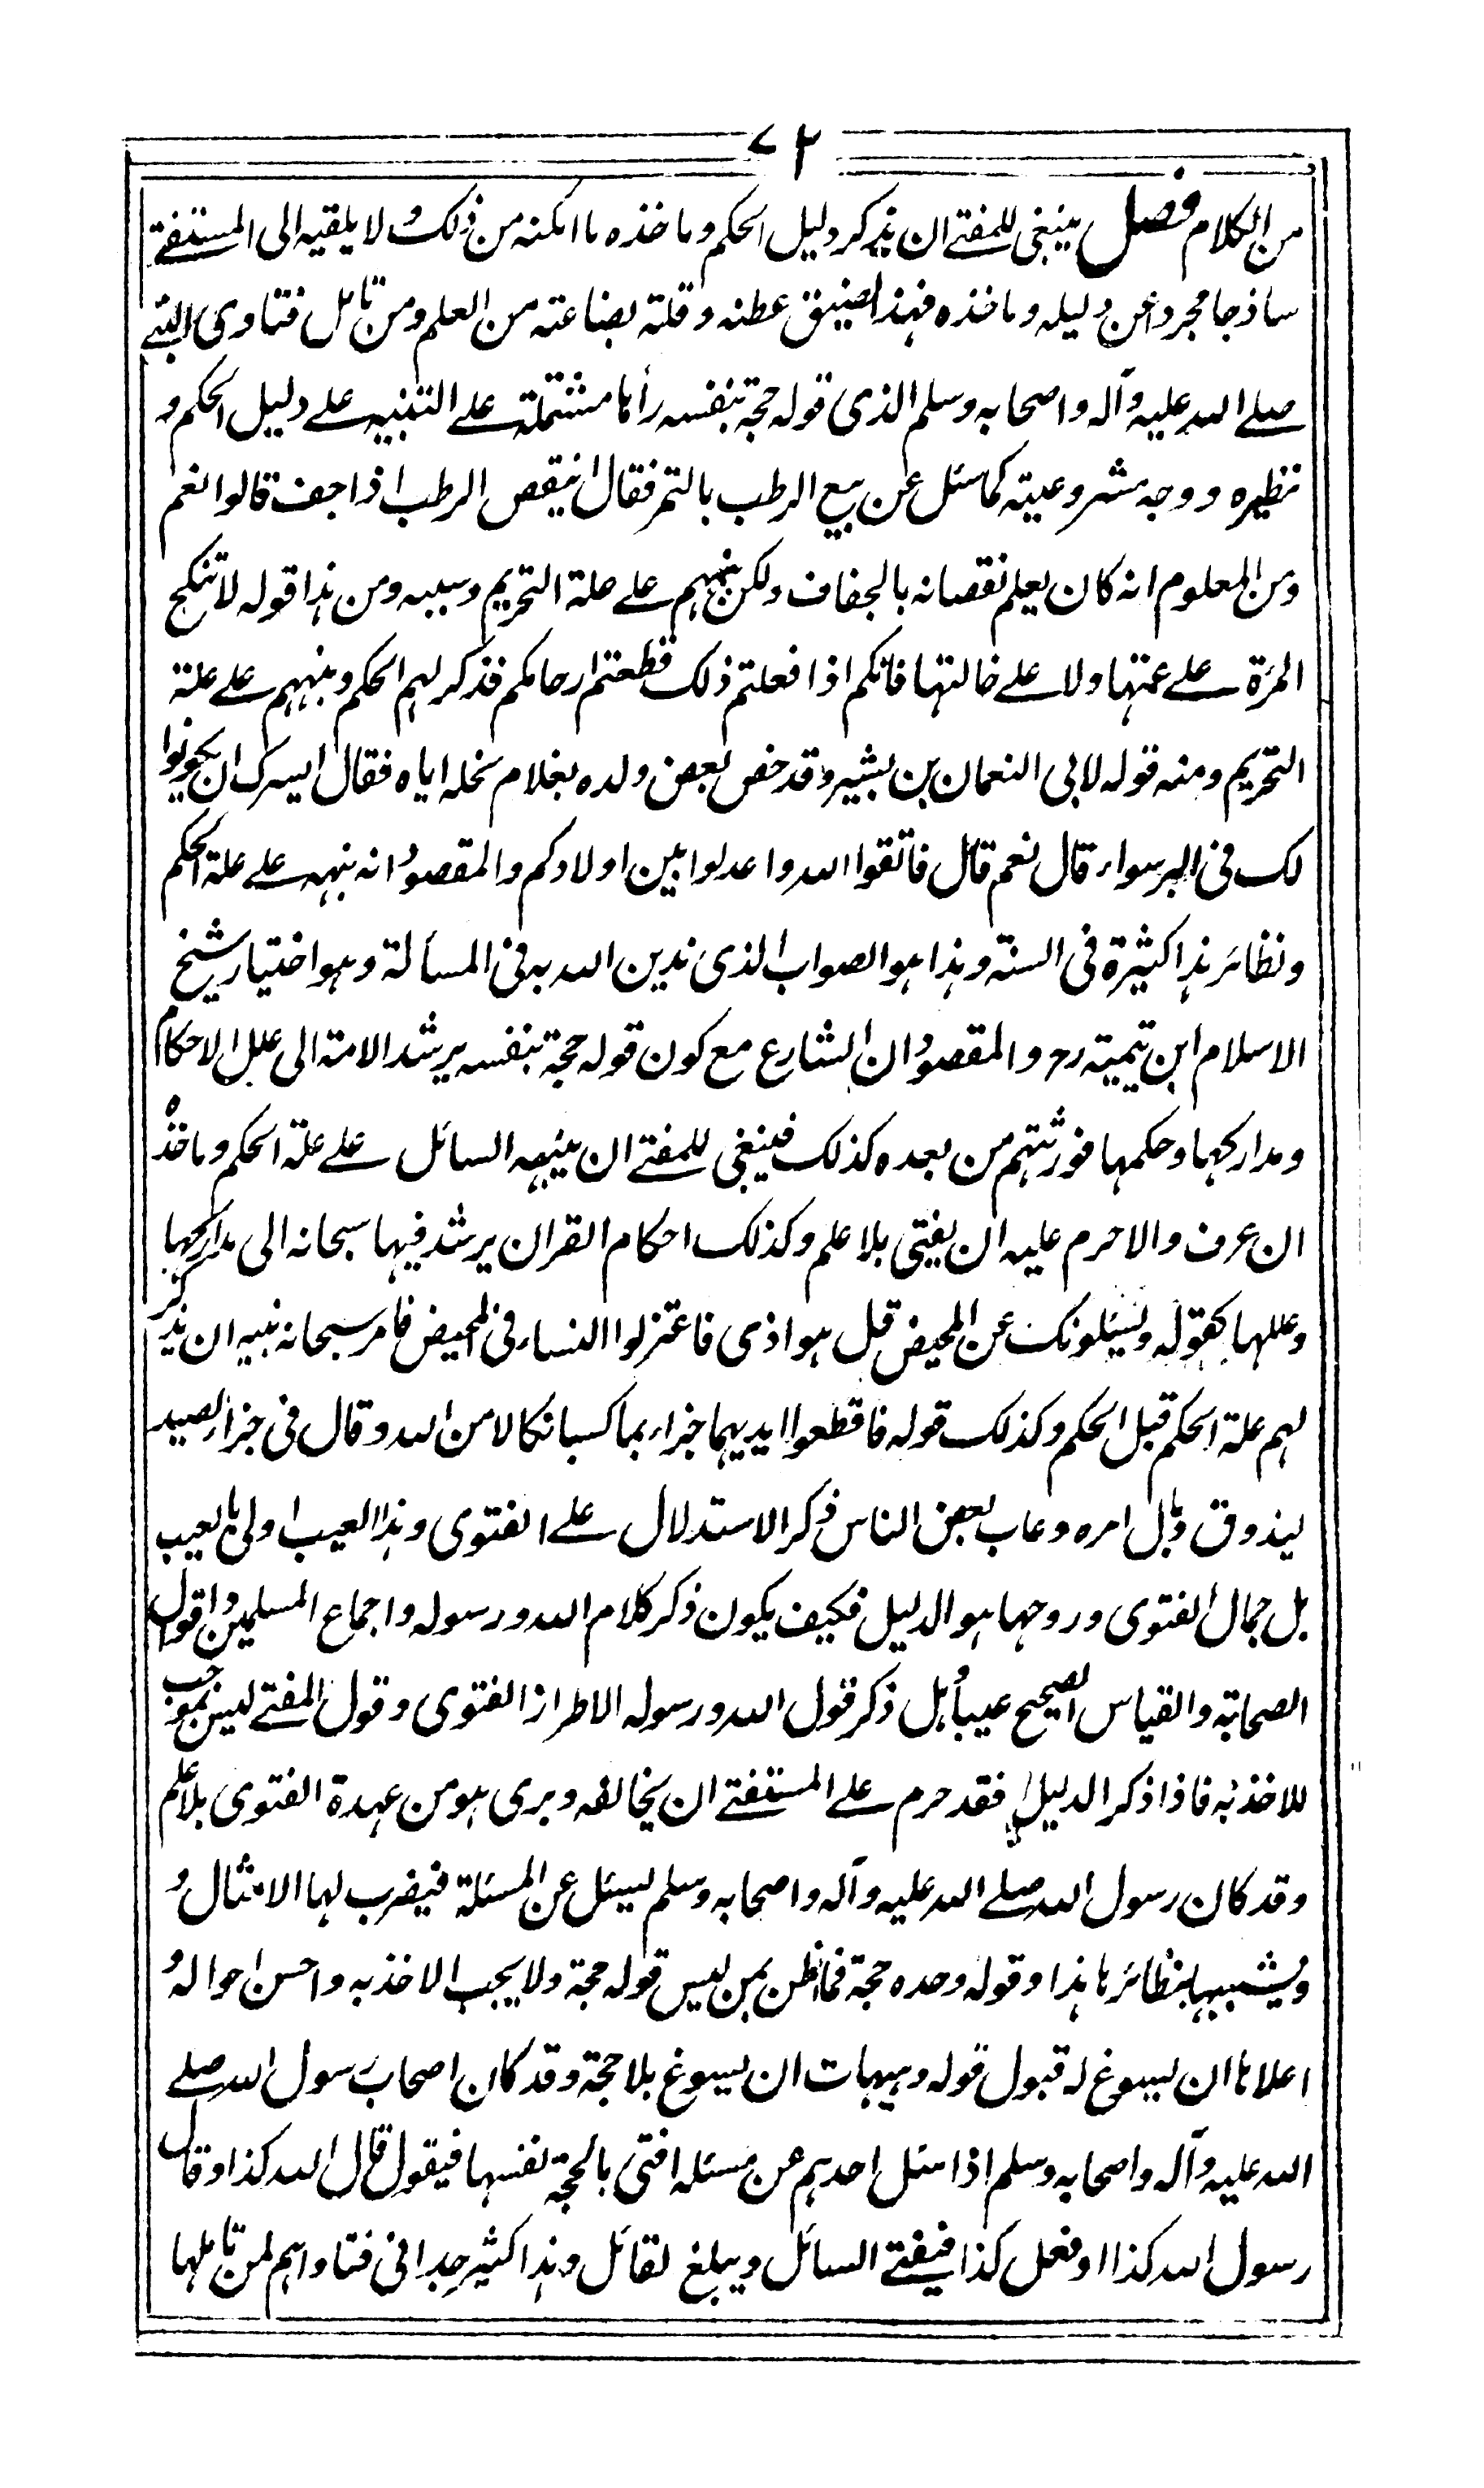 ۷۲
من الکلام فصل ینبغی للمفتے ان یذکر دلیل الحکم وماخذہ ما امکنہ من ذلک ولا یلقیہ الی المستفتے
ساذجا مجردا عن دلیلہ وماخذہ فہذا لضیق عطنہ وقلة بضاعتہ من العلم ومن تامل فتاوی النبی
صلے اللہ علیہ وآلہ واصحابہ وسلم الذی قولہ حجة بنفسہ رآہا مشتملة علے التنبیہ علے دلیل الحکم و
نظیرہ ووجہ مشروعیتہ کما سئل عن بیع الرطب بالتمر فقال اینقص الرطب اذا جف قالوا نعم
ومن المعلوم انہ کان یعلم نقصانہ بالجفاف ولکن نبہہم علے علة التحریم وسببہ ومن ہذا قولہ لا تنکح
المرٔة علے عمتہا ولا علے خالتہا فانکم اذا فعلتم ذلک قطعتم ارحامکم فذکر لہم الحکم ونبہہم علے علة
التحریم ومنہ قولہ لابی النعمان بن بشیر وقد خص بعض ولدہ بغلام نحلہ ایاہ فقال ایسرک ان یکونوا
لک فی البر سواء قال نعم قال فاتقوا اللہ واعدلوا بین اولادکم والمقصود انہ نبہہ علے علة الحکم
ونظائر ہذا کثیرة فی السنة وہذا ہو الصواب الذی ندین اللہ بہ فی المسألة وہو اختیار شیخ
الاسلام ابن تیمیة رح والمقصود ان الشارع مع کون قولہ حجة بنفسہ یرشد الامة الی علل الاحکام
ومدارکہا وحکمہا فورثتہم من بعدہ کذلک فینبغی للمفتے ان ینبہ السائل علے علة الحکم وماخذہ
ان عرف والا حرم علیہ ان یفتی بلا علم وکذلک احکام القران یرشد فیہا سبحانہ الی مدارکہا
وعللہا کقولہ ویسئلونک عن المحیض قل ہو اذی فاعتزلوا النساء فی المحیض فامر سبحانہ نبیہ ان یذکر
لہم علة الحکم قبل الحکم وکذلک قولہ فاقطعوا ایدیہما جزاء بما کسبا نکالا من اللہ وقال فی جزاء الصید
لیذوق وبال امرہ وعاب بعض الناس ذکر الاستدلال علے الفتوی وہذا العیب اولی بالعیب
بل جمال الفتوی وروحہا ہو الدلیل فکیف یکون ذکر کلام اللہ ورسولہ واجماع المسلمین واقوال
الصحابة والقیاس الصحیح عیباً وہل ذکر قول اللہ ورسولہ الا طراز الفتوی وقول المفتے لیس بموجب
للاخذ بہ فاذا ذکر الدلیل فقد حرم علے المستفتے ان یخالفہ وبری ہو من عہدة الفتوی بلا علم
وقد کان رسول اللہ صلے اللہ علیہ وآلہ واصحابہ وسلم یسئل عن المسئلة فیضرب لہا الامثال و
ویشبہہا بنظائرہا ہذا وقولہ وحدہ حجة فما ظن بمن لیس قولہ حجة ولا یجب الاخذ بہ واحسن احوالہ و
اعلاہا ان یسوغ لہ قبول قولہ وہیہات ان یسوغ بلا حجة وقد کان اصحاب رسول اللہ صلے
اللہ علیہ وآلہ واصحابہ وسلم اذا سئل احدہم عن مسئلہ افتی بالحجة نفسہا فیقول قال اللہ کذا وقال
رسول اللہ کذا او فعل کذا فیفتے السائل ویبلغ القائل وہذا کثیر جدا فی فتاواہم لمن تاملہا